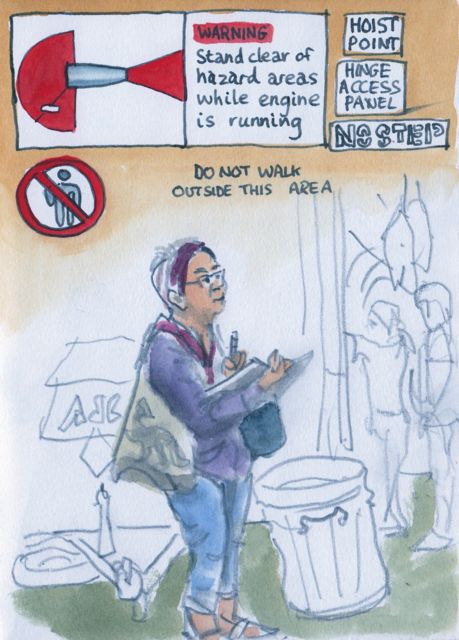 WARNING
Stand clear of
hazard areas
while engine
is running
HOIST
POINT
HINGE
ACCESS
PANEL
NO STEP
DO NOT WALK
OUTSIDE THIS AREA